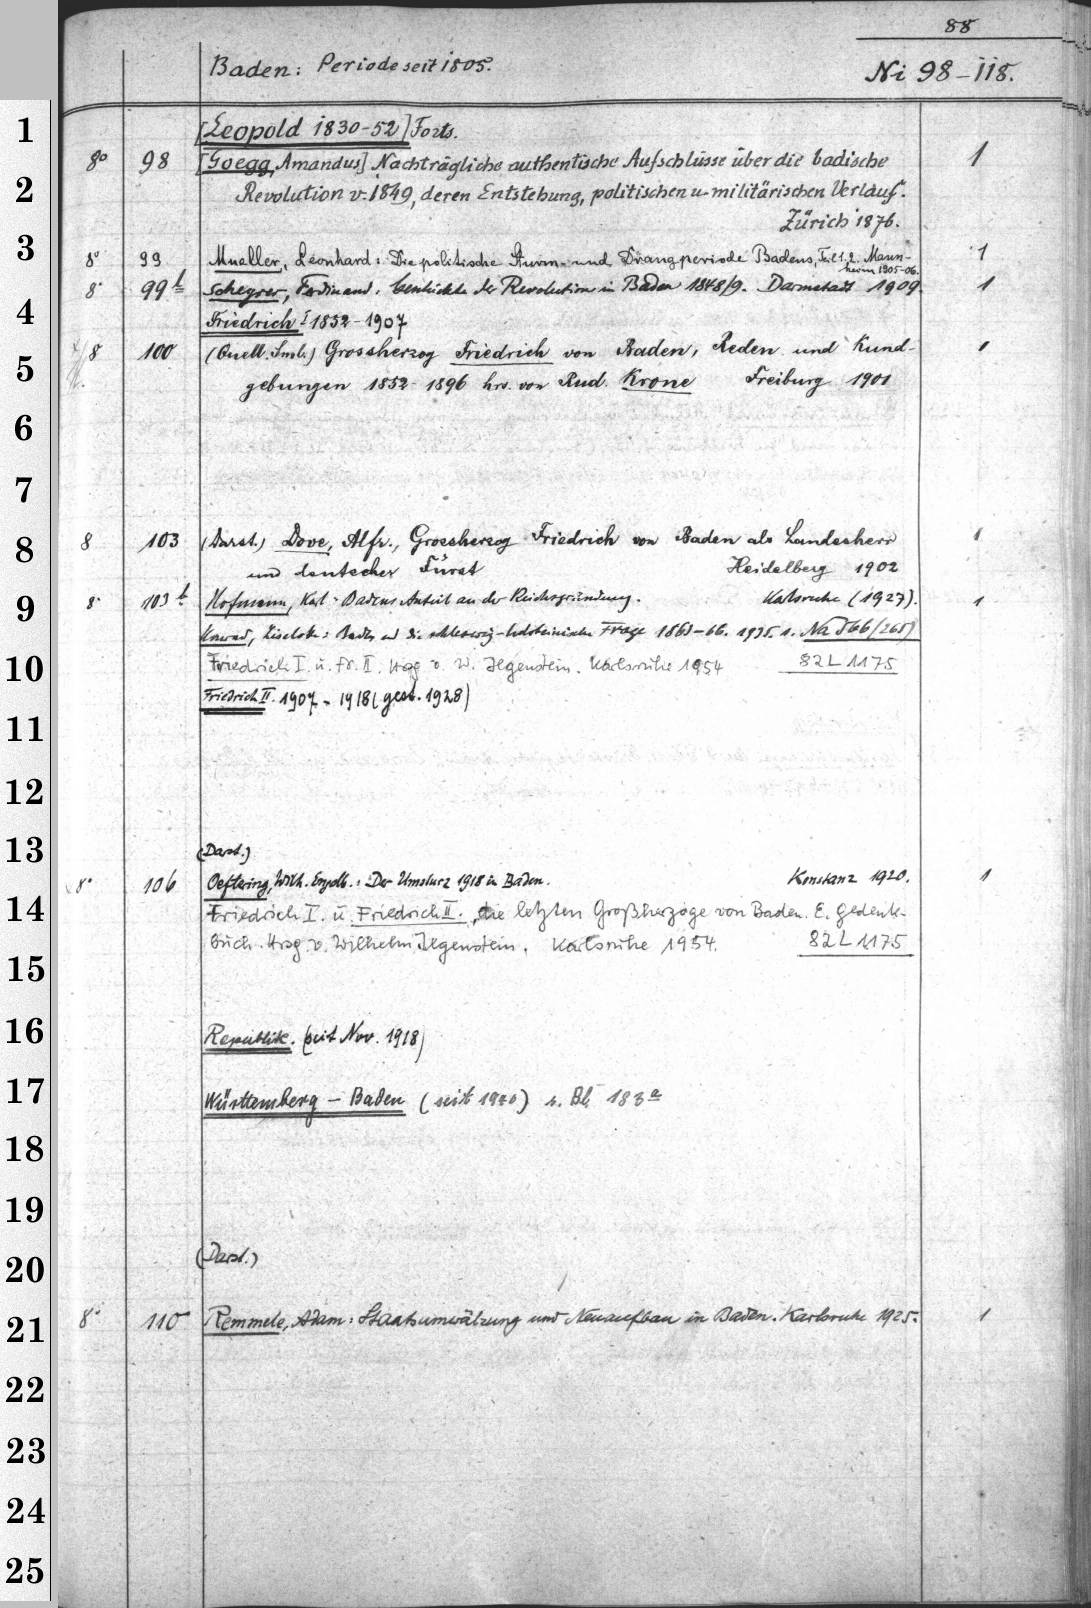 88
Baden: Periode seit 1805. Ni 98-118.
[Leopold 1830-52] Forts.
8° 98 [Goegg, Amandus] Nachträgliche authentische Aufschlüsse über die badische 1
Revolution v. 1849, deren Entstehung, politischen u. militärischen Verlauf.
Zürich 1876.
8° 99 Mueller, Leonhard: Die politische Sturm- und Drangperiode Badens, Teil 1.2. Mann- 1
heim 1905-06.
8° 99b Scheyrer, Ferdinand: Geschichte der Revolution in Baden 1848/9. Darmstadt 1909. 1
Friedrich I 1852-1907
8 100 (Quell. Smlr.) Grossherzog Friedrich von Baden, Reden und Kund- 1
gebungen 1852-1896 hrs. von Rud. Krone Freiburg 1901
8 103 (Darst.) Dove, Alfr., Grossherzog Friedrich von Baden als Landesherr 1
und deutscher Fürst Heidelberg 1902
8° 103b Hofmann, Karl: Badens Anteil an der Reichsgründung. Karlsruhe (1927). 1
Konrad, Liselote: Baden und die schleswig-holsteinische Frage 1863-66. 1935. s. Na 566/265)
Friedrich I. u. Fr. II. Hrsg v. W. Ilgenstein. Karlsruhe 1954 82 L 1175
Friedrich II. 1907-1918 (gest. 1928)
(Darst.)
8° 106 Oeftering, Wilh. Engelb.: Der Umsturz 1918 in Baden. Konstanz 1920. 1
Friedrich I. u. Friedrich II., die letzten Großherzöge von Baden. E. Gedenk-
buch. Hrsg. v. Wilhelm Ilgenstein. Karlsruhe 1954. 82 L 1175
Republik. (seit Nov. 1918)
Württemberg - Baden (seit) s. Bl. 183a
(Darst.)
8° 110 Remmele, Adam: Staatsumwälzung und Neuaufbau in Baden. Karlsruhe 1925. 1
1
2
3
4
5
6
7
8
9
10
11
12
13
14
15
16
17
18
19
20
21
22
23
24
25